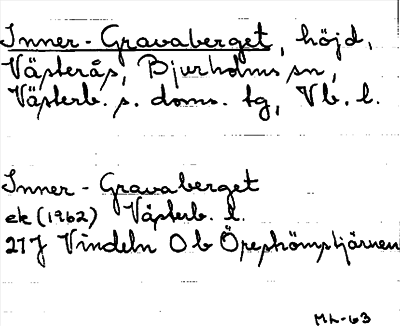 Inner-Gravaberget, höjd,
Västerås, Bjurholms sn,
Västerb. s. doms. tg, Vb. l.
Inner-Gravaberget
ek (1962) Västerb. l.
21J Vindeln 0 b Örepshömstjärnen
ML-63